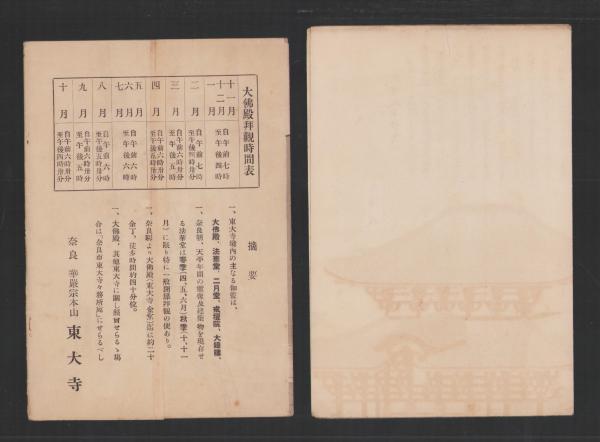 大佛殿拜觀時間表
十一月 十二月 一月 自午前七時 至午後四時
二月 自午前七時 至午後四時卅分
三月 自午前六時卅分 至午後五時
四月 自午前六時卅分 至午後五時卅分
五月 六月 七月 自午前六時 至午後六時
八月 自午前六時 至午後五時卅分
九月 自午前六時卅分 至午後五時
十月 自午前六時卅分 至午後四時卅分
摘要
一、東大寺境内の主なる伽藍は、
大佛殿、法華堂、二月堂、戒壇院、大鐘樓、
一、奈良朝、天平年間の靈像及建築物を現存せ
る法華堂は春季(四、五、六月)秋季(十、十一
月)に限り特に一般開扉拜觀の便あり。
一、奈良驛より大佛殿(東大寺金堂)迄は約二十
余丁、徒歩時間約四十分位。
一、大佛殿、其他東大寺に關し照會せらるゝ場
合は「奈良市東大寺々務所宛」にせらるべし
奈良 華嚴宗本山 東大寺